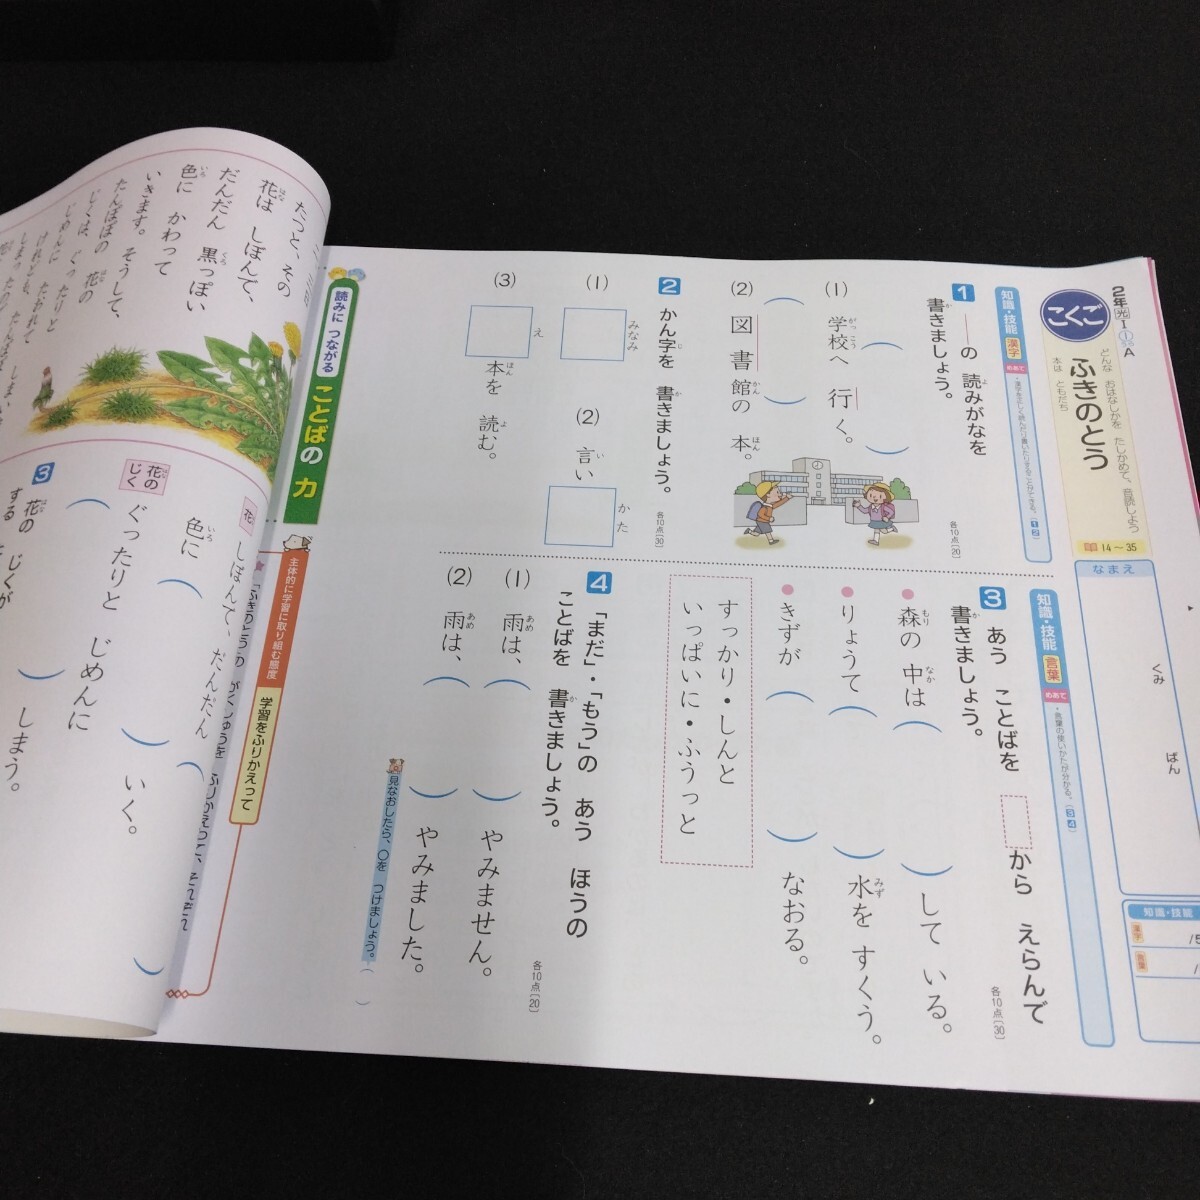 2年 光 Ⅰ ① A
こくご
どんな おはなしかを たしかめて、音読しよう
ふきのとう
本は ともだち
14～35
なまえ
くみ
ばん
知識・技能
漢字
言葉
知識・技能 漢字 めあて
1 ――の 読みがなを 書きましょう。
各10点〔20〕
(1) 学校へ 行く。
(2) 図書館の 本。
2 かん字を 書きましょう。
各10点〔30〕
(1) みなみ
(2) 言い かた
(3) え 本を 読む。
知識・技能 言葉 めあて
・言葉の使いかたが分かる。〔3 4〕
3 あう ことばを から えらんで 書きましょう。
各10点〔30〕
森の 中は して いる。
りょうて 水を すくう。
きずが なおる。
すっかり・しんと
いっぱいに・ふうっと
4 「まだ」・「もう」の あう ほうの ことばを 書きましょう。
各10点〔20〕
(1) 雨は、 やみません。
(2) 雨は、 やみました。
見なおしたら、○を つけましょう。
読みに つながる ことばの 力
主体的に学習に取り組む態度
学習をふりかえって
たつと、その
花は しぼんで、
だんだん 黒っぽい
色に かわって
いきます。そうして、
たんぽぽの 花の
じくは、ぐったりと
じめんに
花 しぼんで、だんだん
色に いく。
花の じく ぐったりと じめんに しまう。
3 花の じくが
する